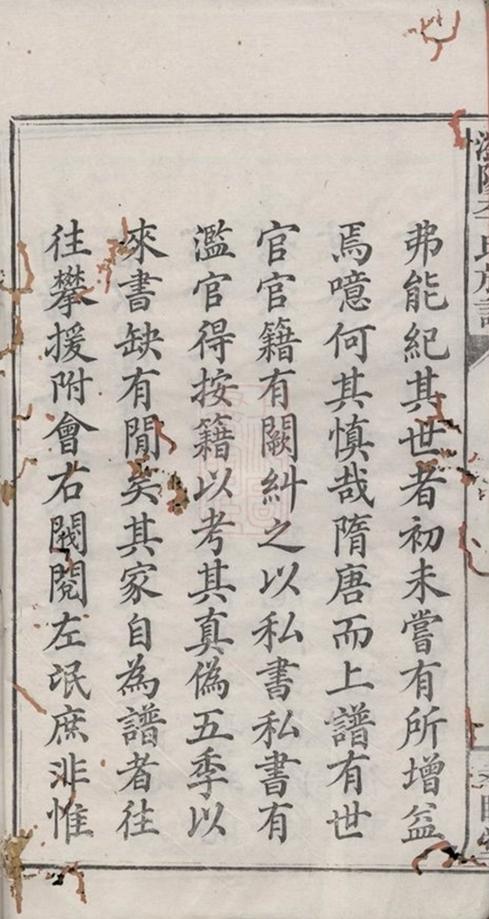 弗能紀其世者初未嘗有所增益
焉噫何其慎哉隋唐而上譜有世
官官籍有闕糾之以私書私書有
濫官得按籍以考其真偽五季以
來書缺有閒矣其家自為譜者往
往攀援附會右閥閱左氓庶非惟